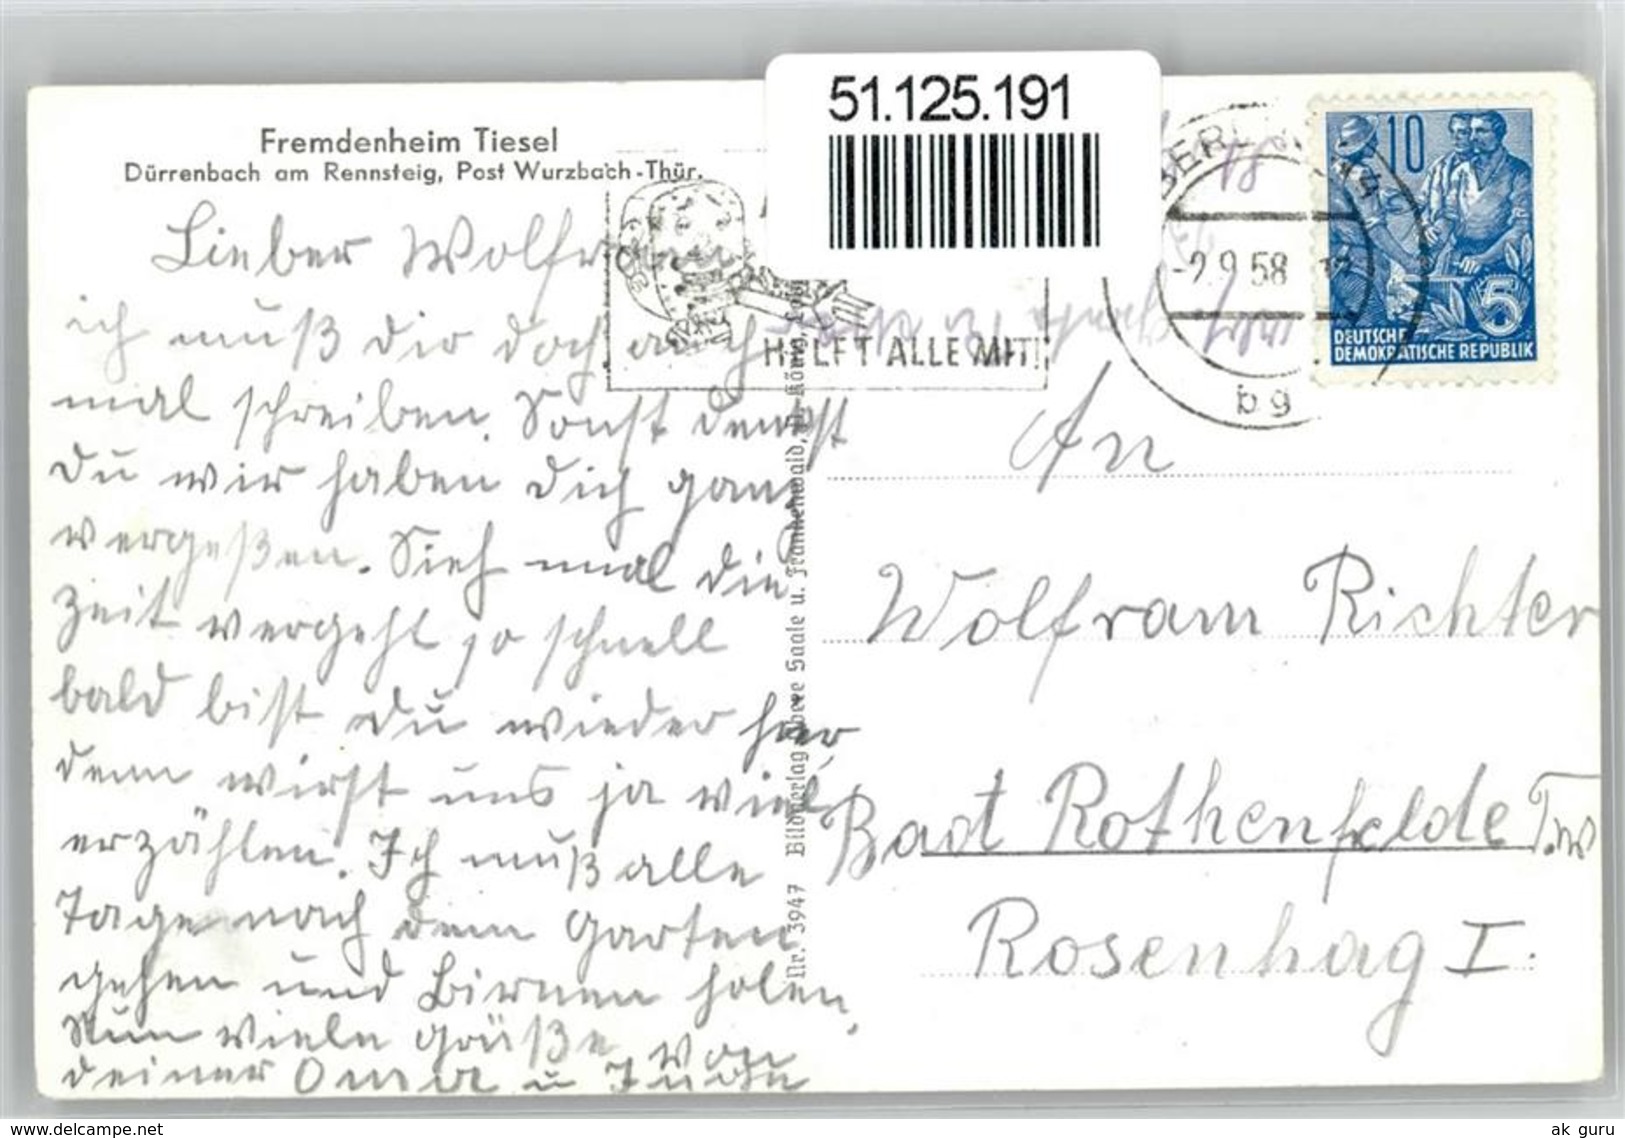 51.125.191
Fremdenheim Tiesel
Dürrenbach am Rennsteig, Post Wurzbach-Thür.
Lieber Wolfram
ich muß dir doch auch
mal schreiben. Sonst denkst
du wir haben dich ganz
vergeßen. Sieh mal die
Zeit vergeht so schnell
bald bist du wieder hier,
denn wirst uns ja viel
erzählen. Ich muß alle
Tage nach dem Garten
gehen und Birnen holen,
Nun viele Grüße von
deiner Oma u
HELFT ALLE MIT!
Nr. 3947 Bildverlag obere Saale u. Frankenwald, König, Lob
BERL
-2.9.58
bg
10
5
DEUTSCHE
DEMOKRATISCHE REPUBLIK
An
Wolfram Richter
Bad Rothenfelde T.W
Rosenhag I.
www.delcampe.net
ak_guru